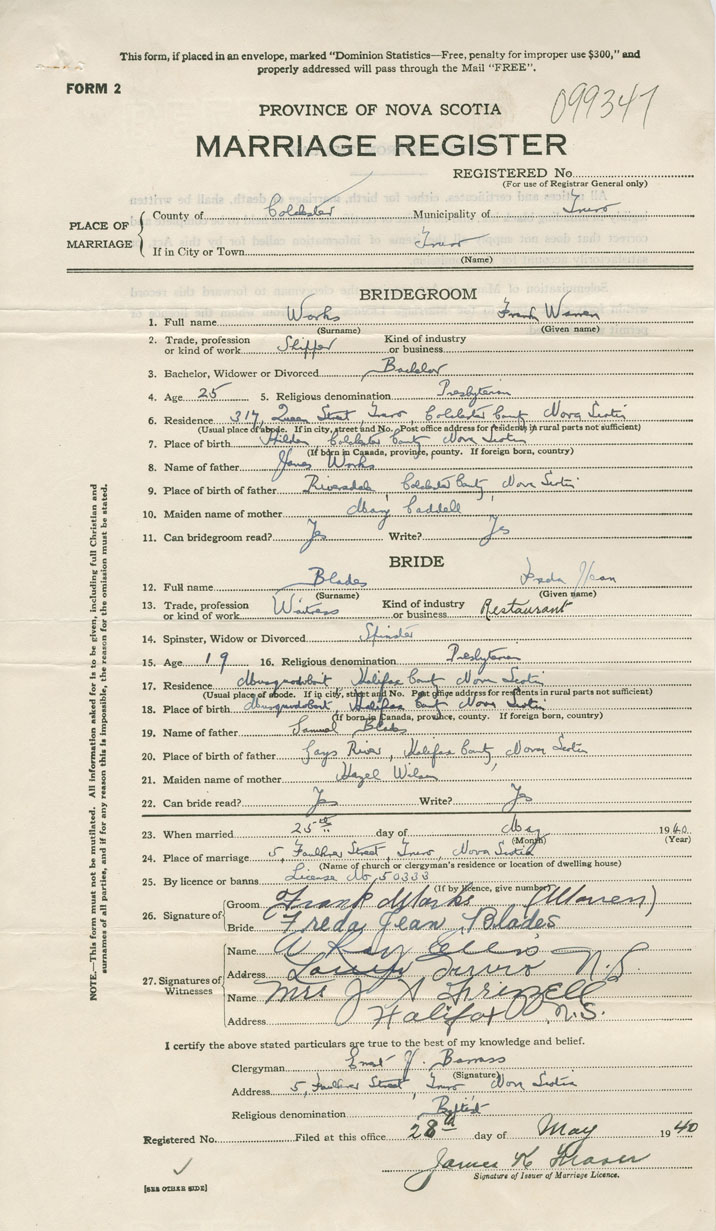 This form, if placed in an envelope, marked "Dominion Statistics—Free, penalty for improper use $300," and
properly addressed will pass through the Mail "FREE".
FORM 2
099347
PROVINCE OF NOVA SCOTIA
MARRIAGE REGISTER
REGISTERED No.
(For use of Registrar General only)
PLACE OF MARRIAGE
County of Colchester Municipality of Truro
If in City or Town Truro
(Name)
BRIDEGROOM
1. Full name Works Frank Warren
(Surname) (Given name)
2. Trade, profession or kind of work Shipper Kind of industry or business
3. Bachelor, Widower or Divorced Bachelor
4. Age 25 5. Religious denomination Presbyterian
6. Residence 317, Queen Street, Truro, Colchester County Nova Scotia
(Usual place of abode. If in city, street and No. Post office address for residents in rural parts not sufficient)
7. Place of birth Hilden, Colchester County Nova Scotia
(If born in Canada, province, county. If foreign born, country)
8. Name of father James Works
9. Place of birth of father Riversdale, Colchester County, Nova Scotia
10. Maiden name of mother Mary Caddell
11. Can bridegroom read? Yes Write? Yes
BRIDE
12. Full name Blades Freda Jean
(Surname) (Given name)
13. Trade, profession or kind of work Waitress Kind of industry or business Restaurant
14. Spinster, Widow or Divorced Spinster
15. Age 19 16. Religious denomination Presbyterian
17. Residence Musquodoboit, Halifax County Nova Scotia
(Usual place of abode. If in city, street and No. Post office address for residents in rural parts not sufficient)
18. Place of birth Musquodoboit, Halifax County Nova Scotia
(If born in Canada, province, county. If foreign born, country)
19. Name of father Samuel Blades
20. Place of birth of father Gays River, Halifax County, Nova Scotia
21. Maiden name of mother Hazel Wilson
22. Can bride read? Yes Write? Yes
23. When married 25th day of May 1940
(Month) (Year)
24. Place of marriage 5, Faulkner Street, Truro, Nova Scotia
(Name of church or clergyman's residence or location of dwelling house)
25. By licence or banns License No. 50333
(If by licence, give number)
26. Signature of
Groom Frank Works (Warren)
Bride Freda Jean Blades
27. Signatures of Witnesses
Name Ray Ellis
Address Truro N.S.
Name Mrs J A Frizzell
Address Halifax N.S.
I certify the above stated particulars are true to the best of my knowledge and belief.
Clergyman
(Signature)
Address 5, Faulkner Street, Truro Nova Scotia
Religious denomination Baptist
Registered No. Filed at this office 28th day of May 1940
James K Fraser
Signature of Issuer of Marriage Licence.
[SEE OTHER SIDE]
NOTE.—This form must not be mutilated. All information asked for is to be given, including full Christian and
surnames of all parties, and if for any reason this is impossible, the reason for the omission must be stated.